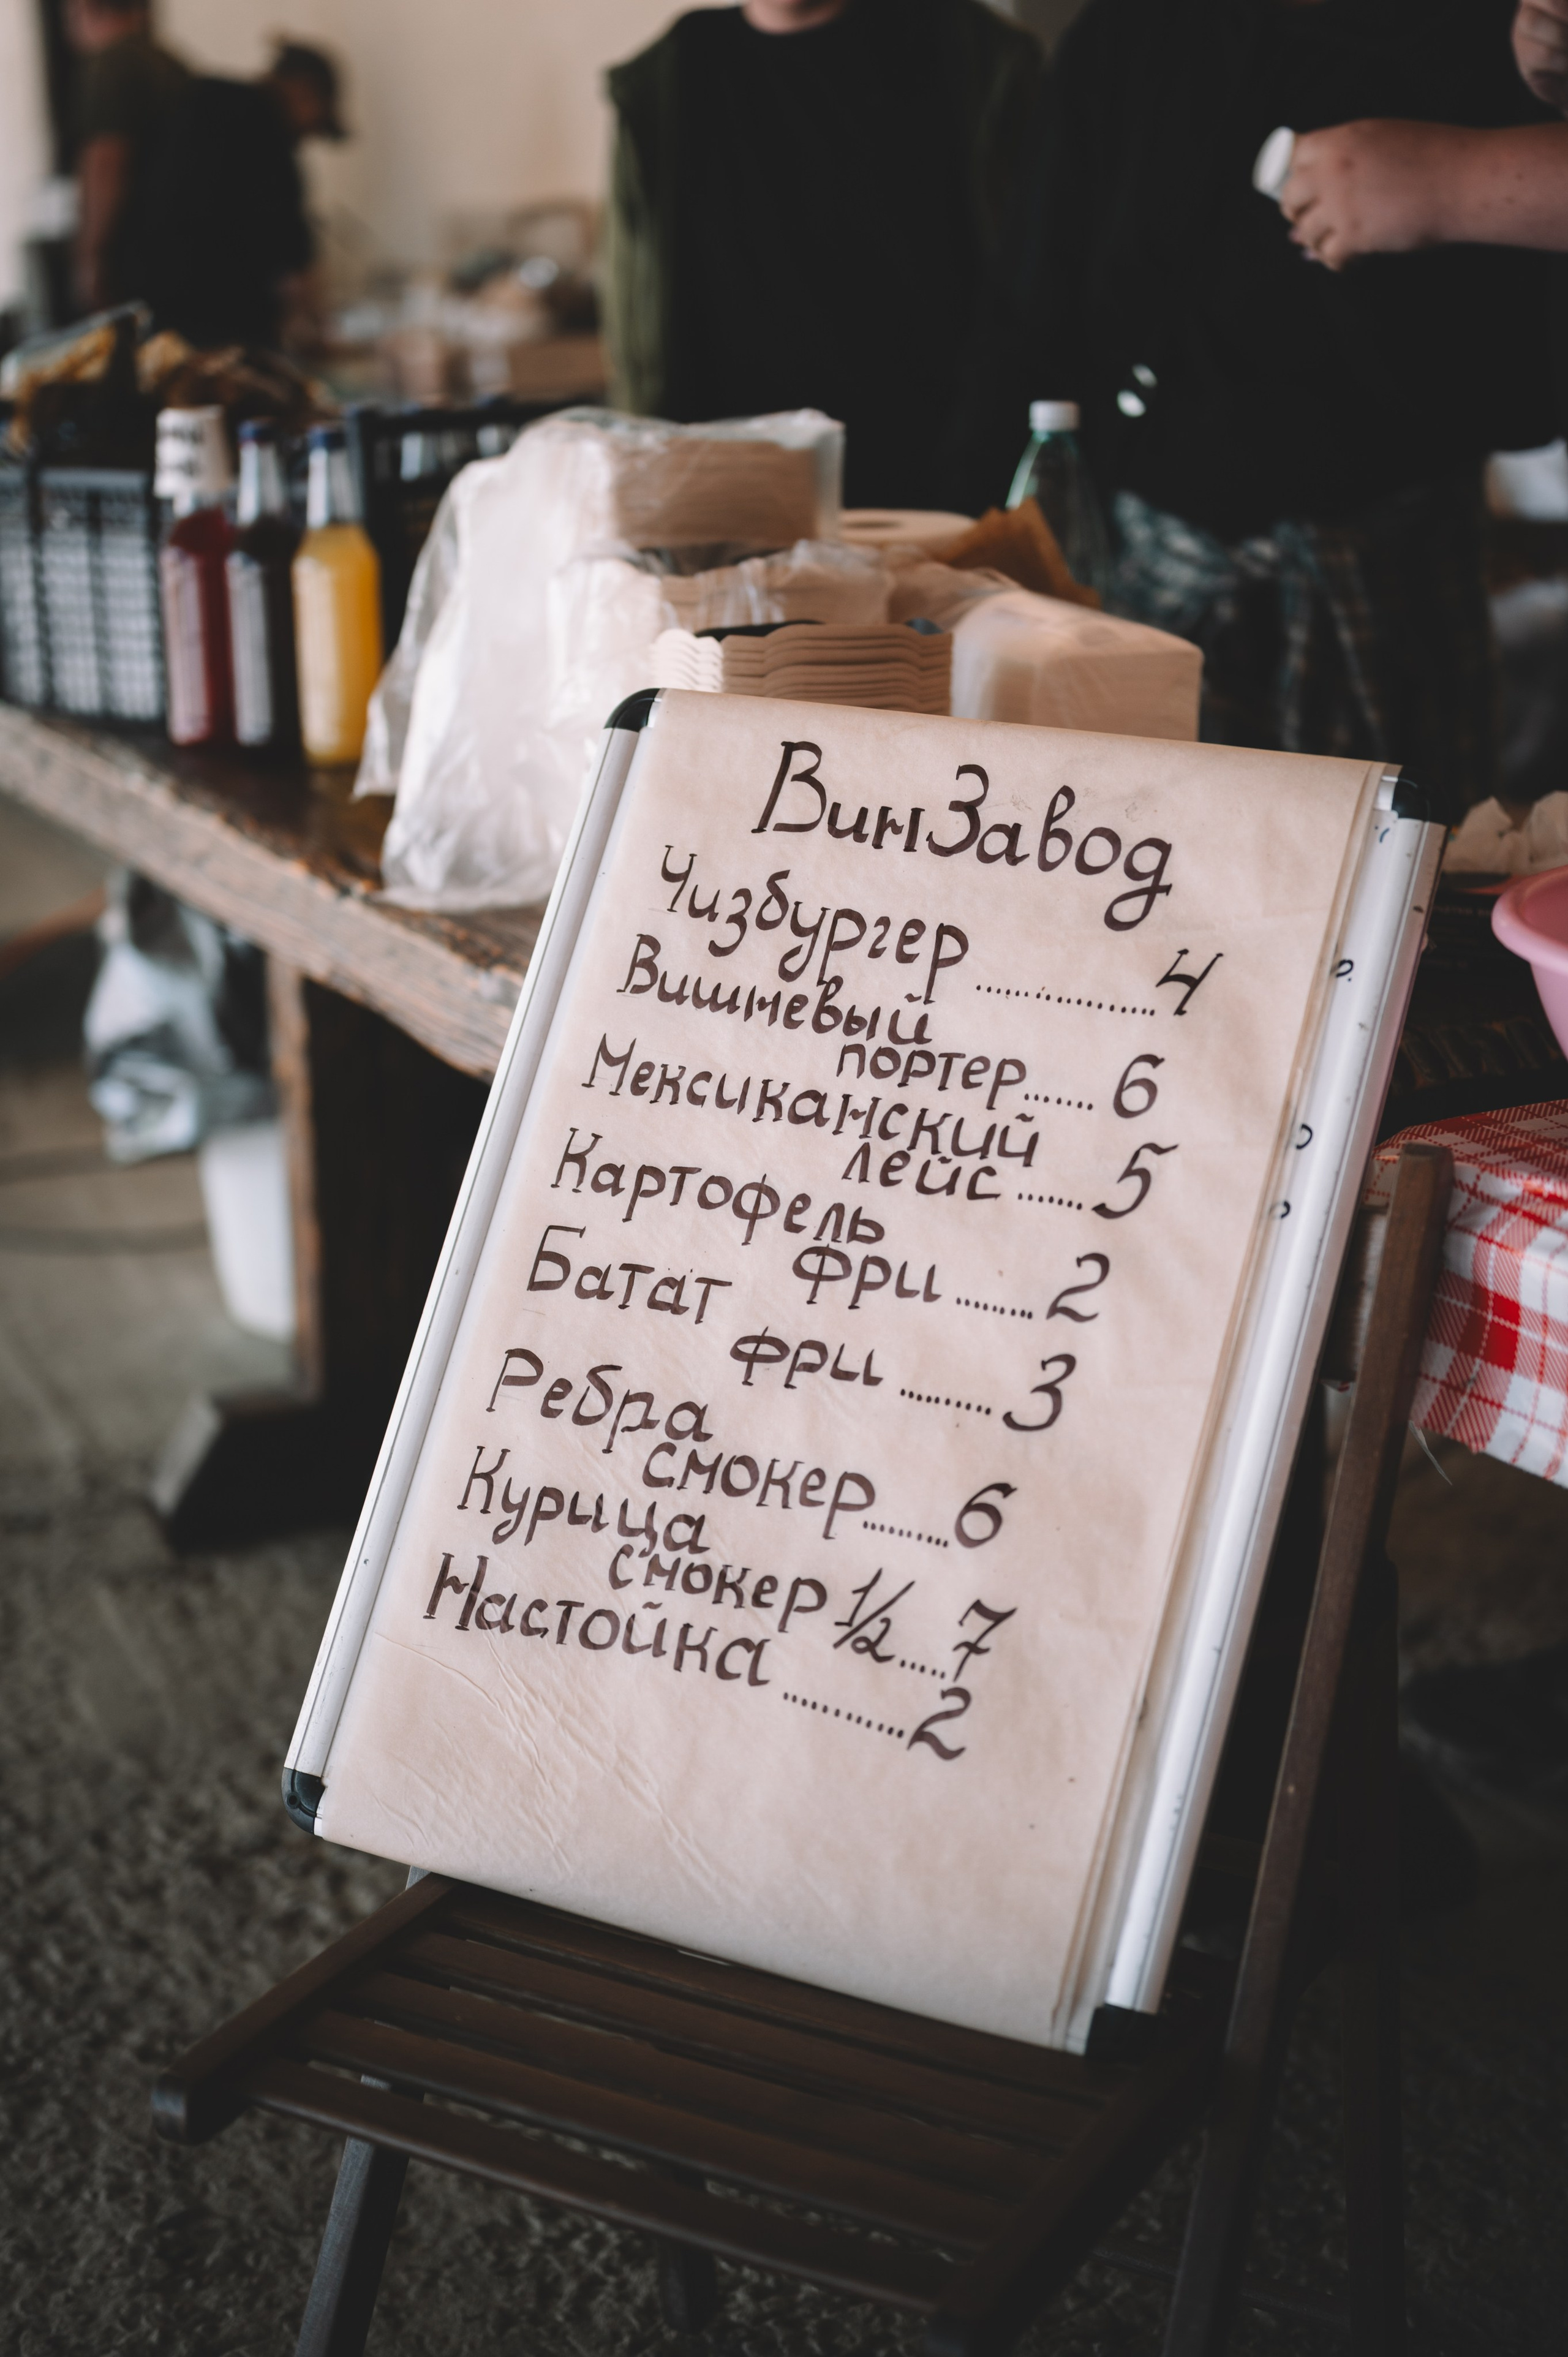 ВинЗавод
Чизбургер ................. 4
Вишневый
портер....... 6
Мексиканский
лейс ....... 5
Картофель
Фри ......... 2
Батат
фри .......... 3
Ребра
смокер.......... 6
Курица
смокер 1/2 ..... 7
Настойка ............. 2